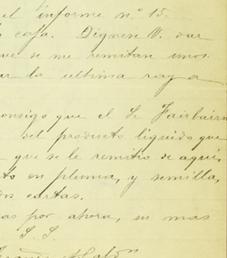 el informe nº 15.
caja. Dígnese V. dar
que se me remitan unos
la ultima raya
consigo que el Sr Fairbairn
del producto liquido que
que se le remitio de aqui,
en pluma, y semilla,
cartas.
por ahora, su mas
S. S.